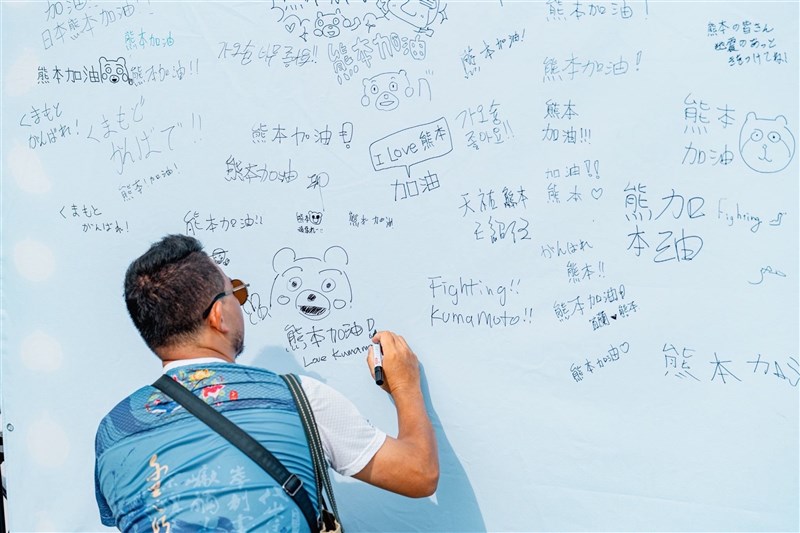 加油
日本熊本加油
熊本加油
熊本加油
熊本加油!!
くまもと
がんばれ!
くまもと
がんばで!!
熊本!加油!
くまもと
がんばれ!
熊本加油!
熊本加油
熊本加油!!
熊本加油
熊本加油
I Love 熊本
加油
熊本加油!
熊本加油!
Love Kumam
熊本加油!
加油!
熊本加油!
熊本
加油!!!
加油!!
熊本♡
天祐熊本
がんばれ
熊本!!
熊本加油!
♥熊本
熊本加油♡
Fighting!!
Kumamoto!!
熊本の皆さん
地震のあと
気をつけてね!
熊本
加油
熊加
本油
Fighting
熊本加油